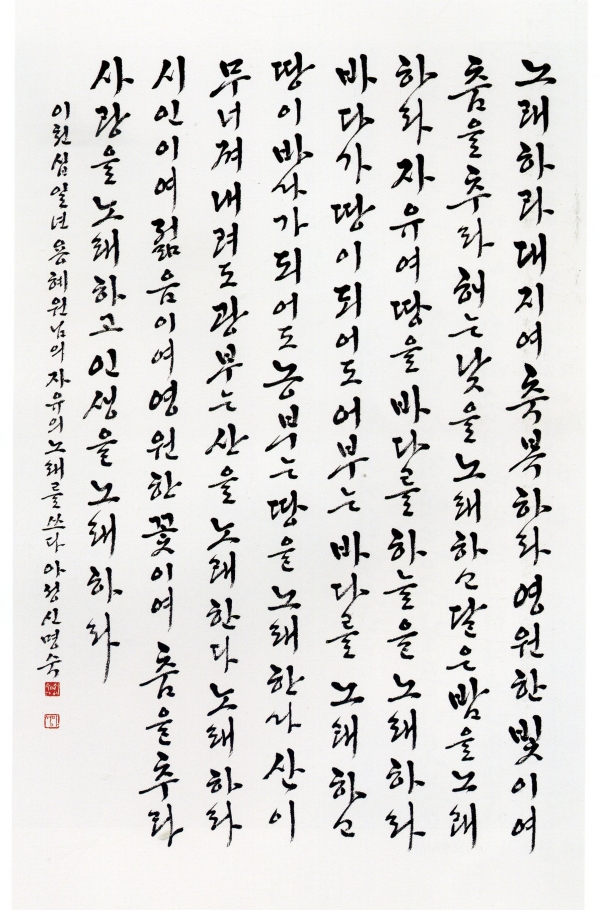 노래하라 대지여 축복하라 영원한 빛이여
춤을 추라 해는 낮을 노래하고 달은 밤을 노래
하라 자유여 땅을 바다를 하늘을 노래하라
바다가 땅이 되어도 어부는 바다를 노래하고
땅이 바다가 되어도 농부는 땅을 노래한다 산이
무너져 내려도 광부는 산을 노래한다 노래하라
시인이여 젊음이여 영원한 꽃이여 춤을 추라
사랑을 노래하고 인생을 노래하라
이천십일년 용혜원님의 자유의 노래를 쓰다 아정 신명숙